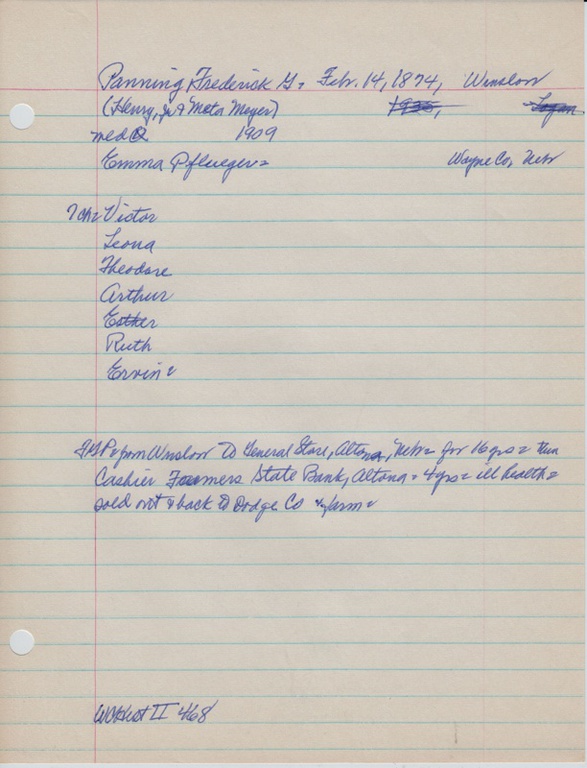 Panning Frederick G= Feb. 14, 1874, Winslow
(Henry, Jr & Meta Meyer) 1938, Logan
med 1909
Emma Pflueger= Wayne Co, Neb
7 ch= Victor
Leona
Theodore
Arthur
Esther
Ruth
Ervin=
FGP= from Winslow to General Store, Altona, Neb= for 16 yrs= then
Cashier Farmers State Bank, Altona= 4 yrs= ill health=
sold out & back to Dodge Co & farm=
II 468